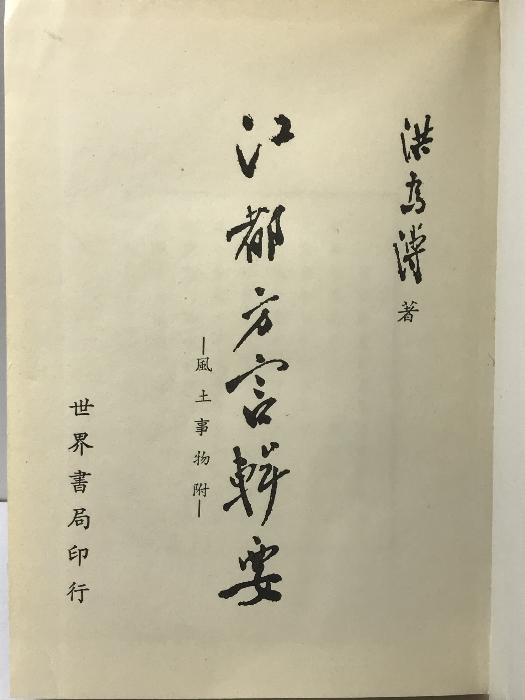 洪為溥著
江都方言輯要
—風土事物附—
世界書局印行